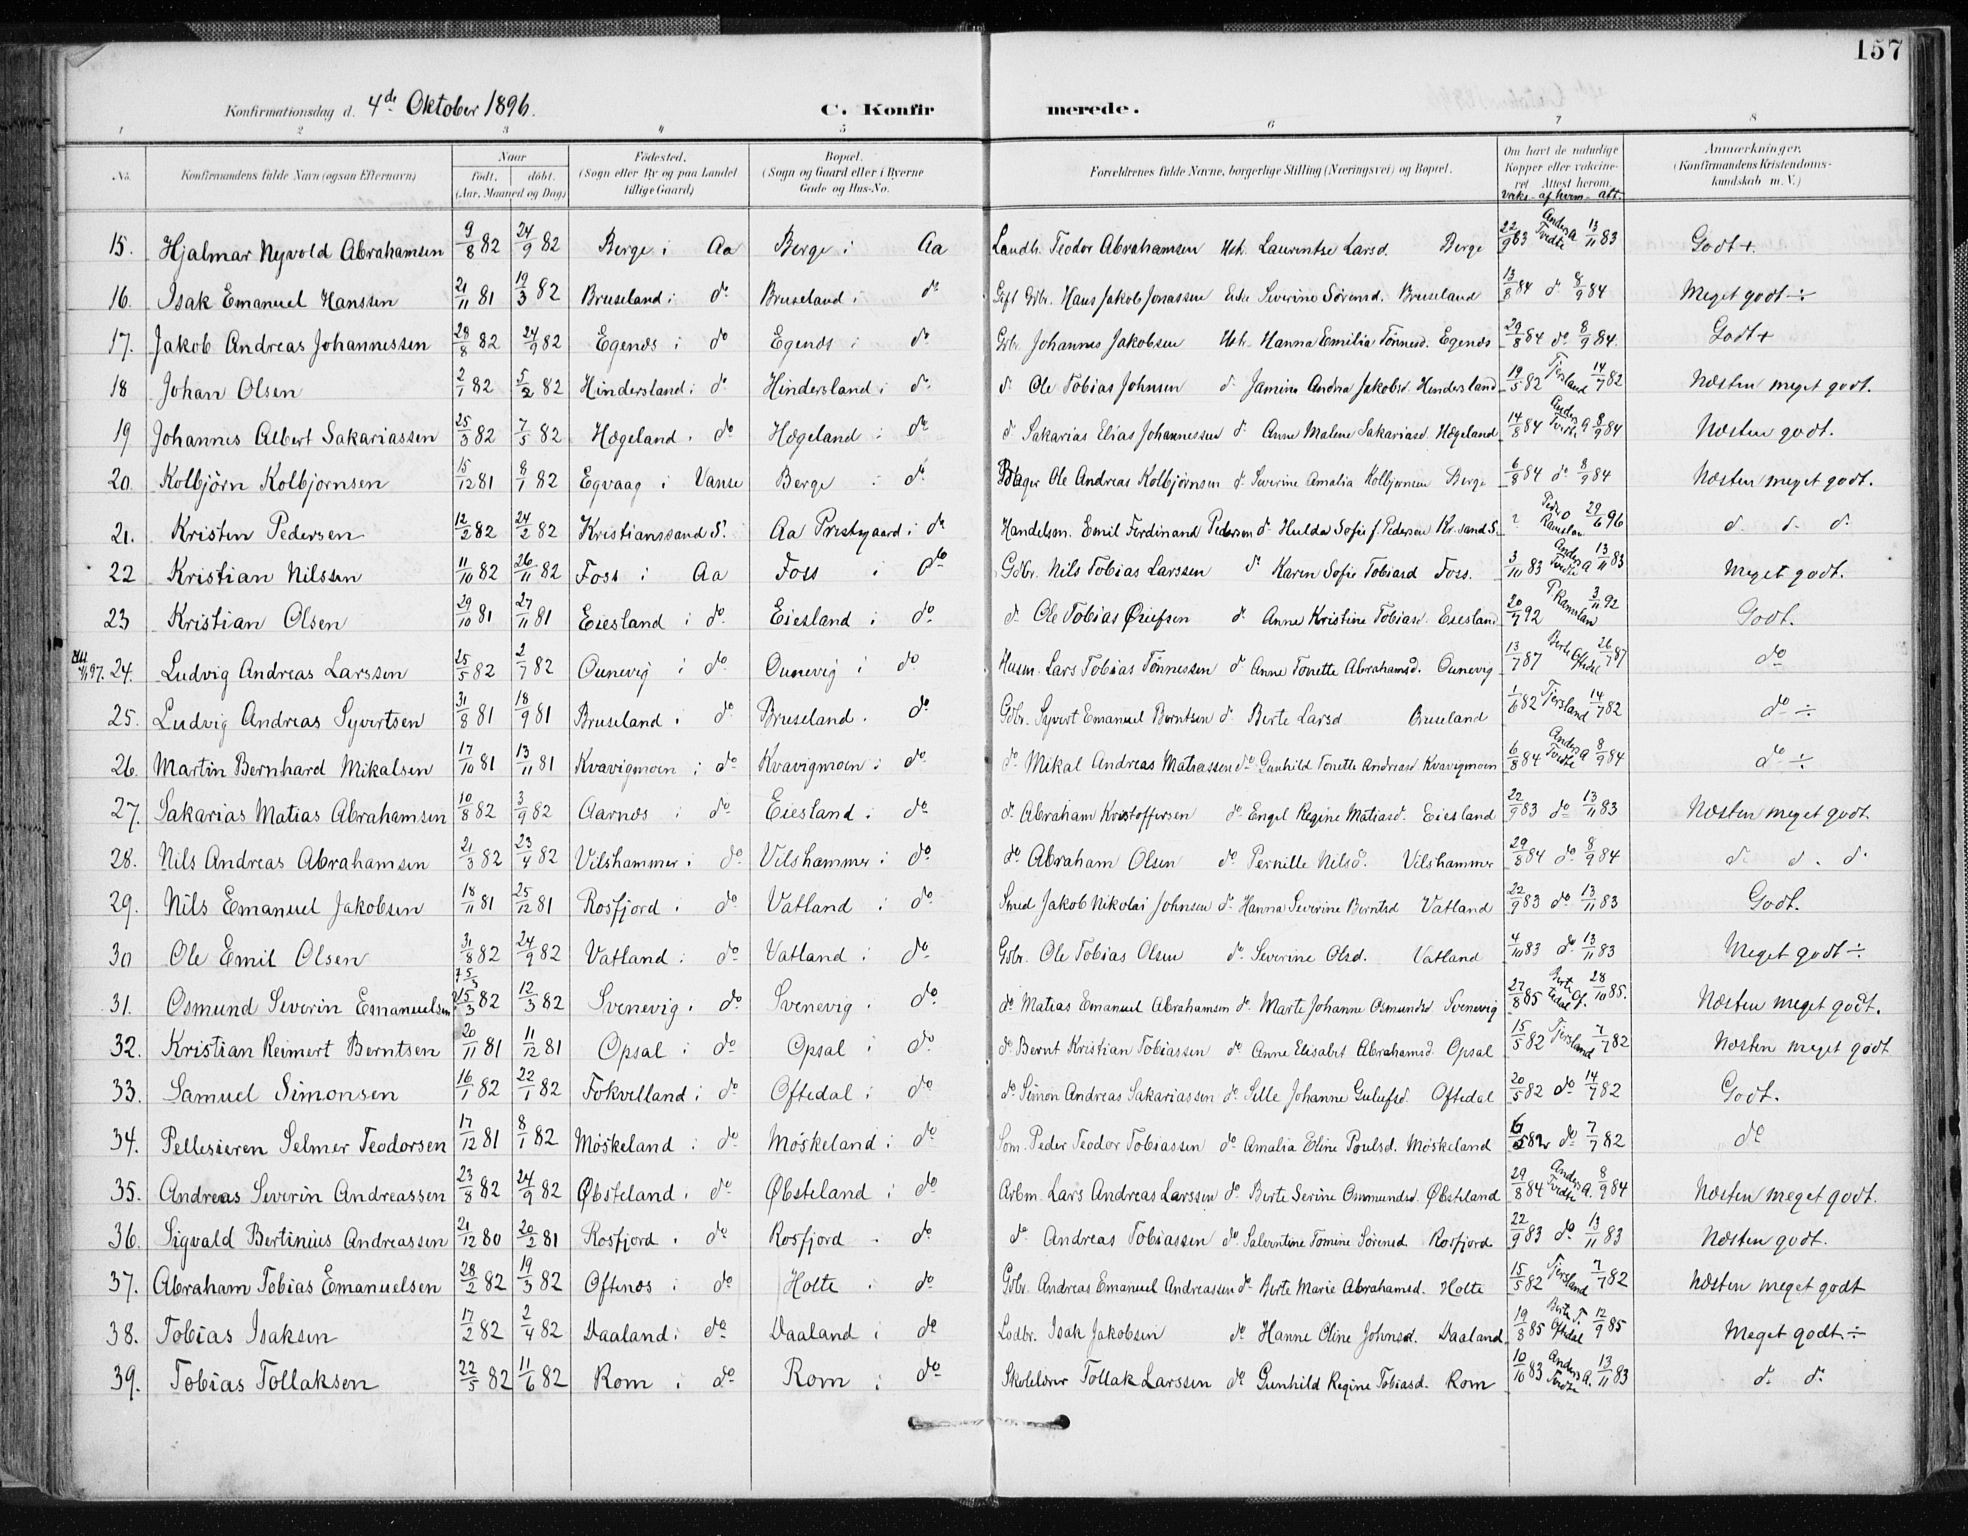 157
Konfirmationsdag d. 4de Oktober 1896. C. Konfir merede.
1 2 3 4 5 6 7 8
No. Konfirmandens fulde Navn (ogsaa Efternavn) Naar født. døbt. (Aar, Maaned og Dag) Fødested. (Sogn eller By og paa Landet tillige Gaard) Bopæl. (Sogn og Gaard eller i Byerne Gade og Hus-No. Forældrenes fulde Navne, borgerlige Stilling (Næringsvei) og Bopæl. Om havt de naturlige Kopper eller vaccineret Attest herom. vaks. af hvem att. Anmærkninger. (Konfirmandens Kristendomskundskab m. V.)
15. Hjalmar Nyvold Abrahamsen 9/8 82 24/9 82 Berge i Aa Berge i Aa Landh. Teodor Abrahamsen Hst. Laurentse Larsd. Berge 22/9 83 Anders A Tvedte 13/11 83 Godt +
16. Isak Emanuel Hanssen 21/11 81 19/3 82 Bruseland i do Bruseland i do Gift Gdbr. Hans Jakob Jonassen Enke Severine Sørensd. Bruseland 13/8 84 do 8/9 84 Meget godt ÷
17. Jakob Andreas Johannessen 28/8 82 24/9 82 Egenæs i do Egenæs i do Gdbr. Johannes Jakobsen Hst. Hanna Emilia Tønnesd. Egenæs 29/8 84 do 8/9 84. Godt +
18 Johan Olsen 2/1 82 5/2 82 Hindersland i do Hindersland i do do Ole Tobias Johnsen do Jamine Andrea Jakobsd. Hindersland 19/5 82 Tjersland 14/7 82 Næsten meget godt.
19 Johannes Albert Sakariassen 25/3 82 7/5 82 Hægeland i do Hægeland i do do Sakarias Elias Johannessen do Anne Malene Sakariasd. Hægeland 14/8 84 Anders A Tvedte 8/9 84 Næsten godt.
20 Kolbjörn Kolbjørnsen 15/12 81 8/1 82 Egvaag i Vanse Berge i do Bager Ole Andreas Kolbjørnsen do Severine Amalia Kolbjørnsen Berge 6/8 84 do 8/9 84 Næsten meget godt.
21. Kristen Pedersen 12/2 82 24/2 82 Kristianssand S. Aa Prestgaard i do Handelsm. Emil Ferdinand Pedersen do Hulda Sofie f. Pedersen Kr.sand S. ? Peder O Ramslan 29/6 96 do do do
22 Kristian Nilssen 11/10 82 26/11 82 Foss i Aa Foss i do Gdbr. Nils Tobias Larssen do Karen Sofie Tobiasd Foss. 3/10 83 Anders A Tvedte 13/11 83 Meget godt.
23 Kristian Olsen 29/10 81 27/11 81 Eiesland i do Eiesland i do do Ole Tobias Øriefsen do Anne Kristine Tobiasd. Eiesland 20/9 92 P. Ramslan 3/11 92 Godt.
24. Ludvig Andreas Larssen 25/5 82 2/7 82 Ounevig i do Ounevig i do Husm. Lars Tobias Tønnessen do Anne Tonette Abrahamsd. Ounevig 13/7 87 Berte Oftedal 26/7 87 do
25. Ludvig Andreas Syvertsen 31/8 81 18/9 81 Bruseland i do Bruseland. do Gdbr. Syvert Emanuel Berntsen do Berte Larsd Bruseland 1/6 82 Tjersland 14/7 82 do ÷
26. Martin Bernhard Mikalsen 17/10 81 13/11 81 Kvavigmoen i do Kvavigmoen i do do Mikal Andreas Matiassen do Gunhild Tonette Andreasd Kvavigmoen 6/8 84 Anders A Tvedte 8/9 84 do ÷
27. Sakarias Matias Abrahamsen 10/8 82 3/9 82 Aarnæs i do Eiesland i do do Abraham Kristoffersen do Engel Regine Matiasd. Eiesland 22/9 83 do 13/11 83 Næsten meget godt.
28. Nils Andreas Abrahamsen 21/3 82 23/4 82 Vilshammer i do Vilshammer i do do Abraham Olsen do Pernille Nilsd. Vilshammer 29/8 84 do 8/9 84 do do do
29. Nils Emanuel Jakobsen 18/11 81 25/12 81 Rosfjord i do Vatland i do Smed Jakob Nikolai Johnsen do Hanna Severine Berntsd Vatland 22/9 83 do 13/11 83 Godt.
30 Ole Emil Olsen 31/8 82 24/9 82 Vatland i do Vatland i do Gdbr. Ole Tobias Olsen do Severine Olsd. Vatland 4/10 83 do 13/11 83 Meget godt ÷
31. Osmund Severin Emanuelsen 15/3 82 12/3 82 Svenevig i do Svenevig i do do Matias Emanuel Abrahamsen do Marte Johanne Osmundsd Svenevig 27/8 85 28/10 85. Næsten meget godt.
32. Kristian Reimert Berntsen 20/11 81 11/12 81 Opsal i do Opsal i do do Bernt Kristian Tobiassen do Anne Elisabet Abrahamsd. Opsal 15/5 82 Tjersland 7/7 82 Næsten meget godt
33. Samuel Simonsen 16/1 82 22/1 82 Fokvelland i do Oftedal i do do Simon Andreas Sakariassen do Sille Johanne Gulufsd. Oftedal 20/5 82 do 14/7 82 Godt.
34. Pellesieren Selmer Teodorsen 17/12 81 8/1 82 Möskeland i do Möskeland i do Søm. Peder Teodor Tobiassen do Amalia Eline Poulsd. Møskeland 6/5 82 do 7/7 82 do
35. Andreas Severin Andreassen 23/8 82 24/9 82 Øbsteland i do Øbsteland i do Arbm. Lars Andreas Larssen do Berte Serine Osmundsd. Øbsteland 29/8 84 Anders A. Tvedte 8/9 84 Næsten meget godt.
36. Sigvald Bertinius Andreassen 21/12 80 20/2 81 Rosfjord i do Rosfjord - do do Andreas Tobiassen do Salventine Tomine Sørensd Rosfjord 22/9 83 do 13/11 83 Næsten godt.
37. Abraham Tobias Emanuelsen 28/2 82 19/3 82 Oftenæs i do Holte i do Gdbr. Andreas Emanuel Andreassen do Berte Marie Abrahamsd. Holte 15/5 82 Tjersland 7/7 82 Næsten meget godt
38. Tobias Isaksen 17/2 82 2/4 82 Vaaland i do Vaaland i do Lodbr. Isak Jakobsen do Hanne Oline Johnsd. Vaaland 19/8 85 Berte T. Oftedal 12/9 85 Meget godt ÷
39. Tobias Tollaksen 22/5 82 11/6 82 Rom i do Rom i do Skolelærer Tollak Larssen do Gunhild Regine Tobiasd. Rom 10/10 83 Anders A. Tvedte 13/11 83 do do